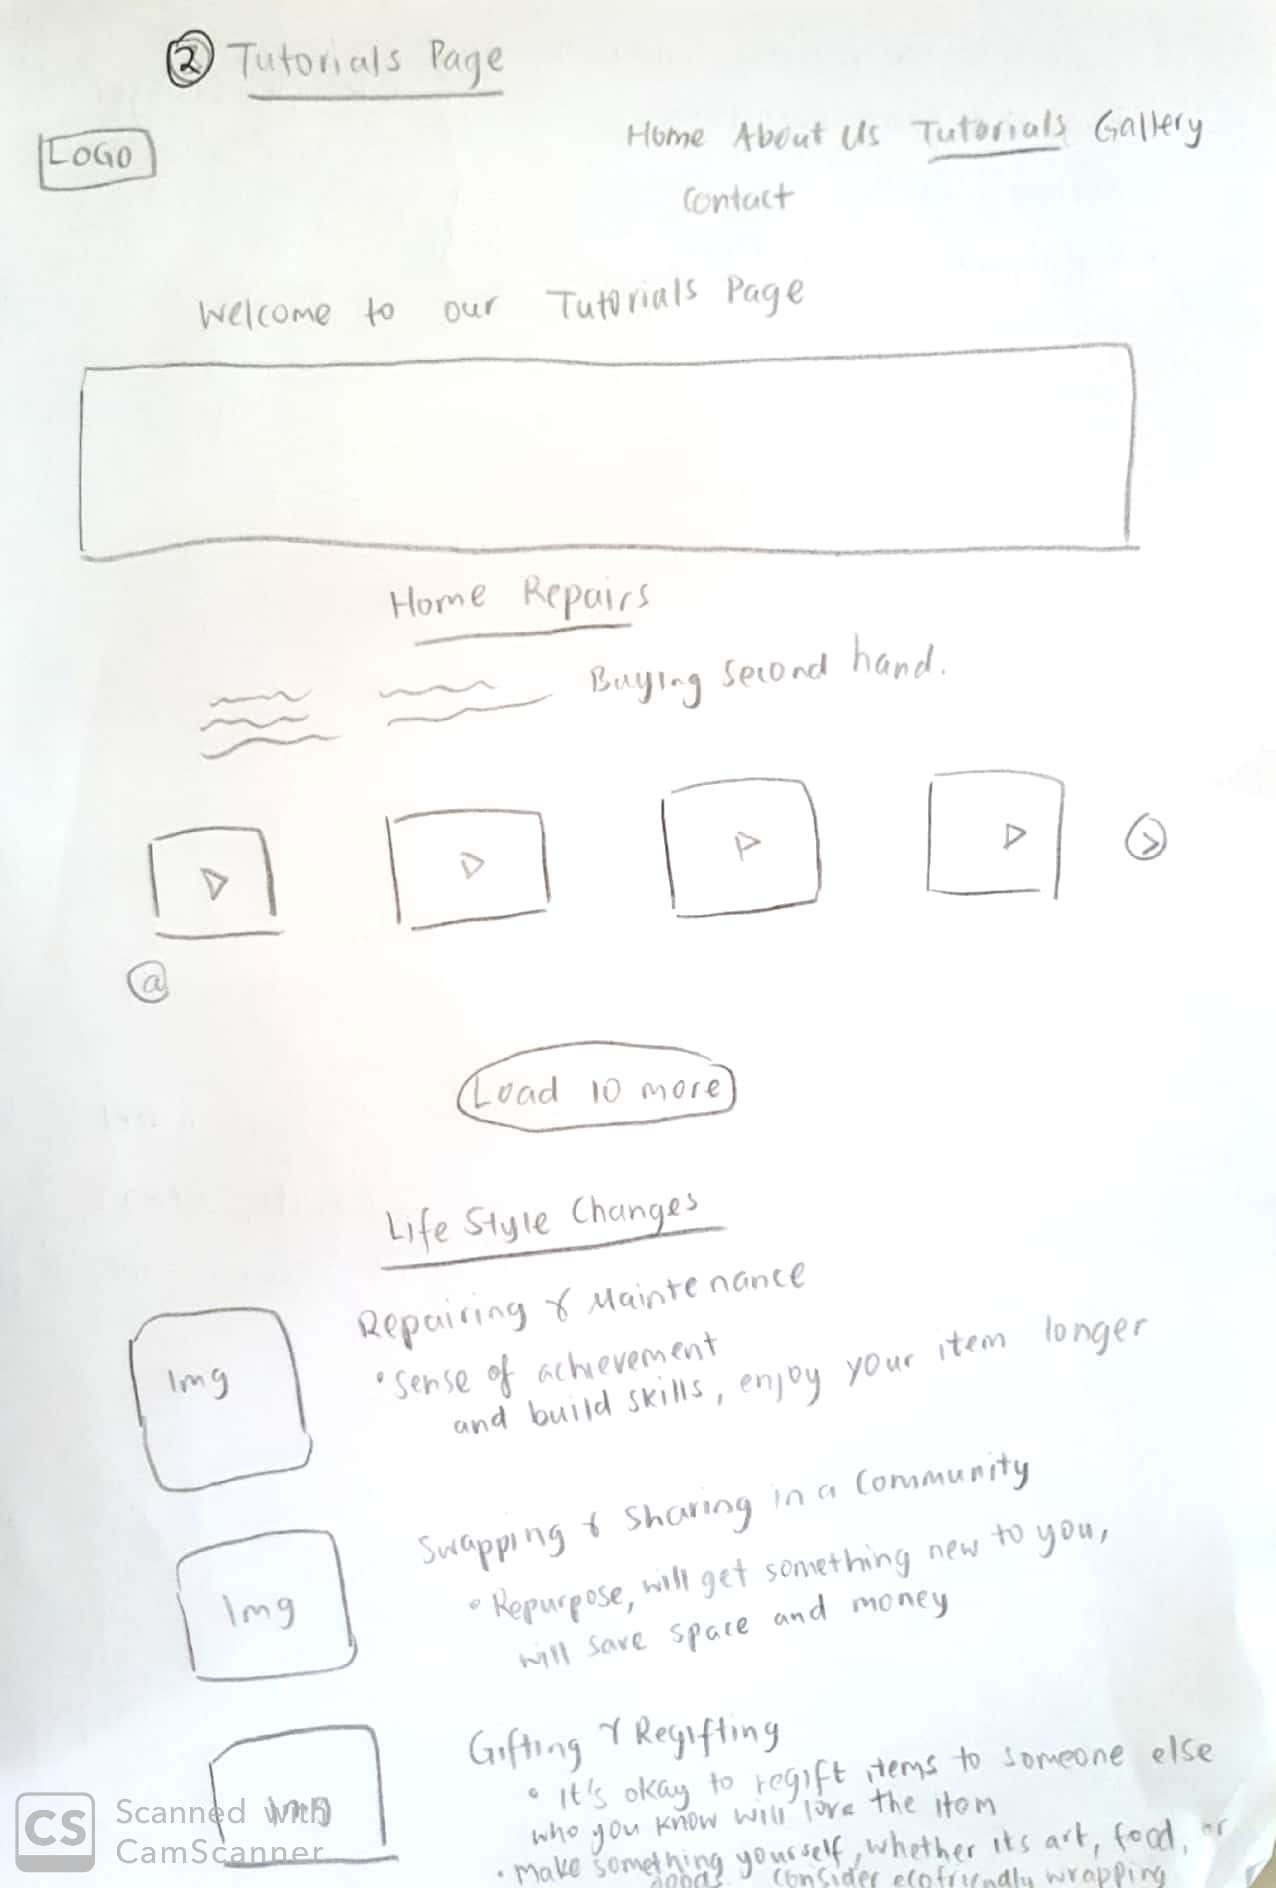 2 Tutorials Page
LOGO
Home About Us Tutorials Gallery
Contact
Welcome to our Tutorials Page
Home Repairs
Buying second hand.
a
Load 10 more
Life Style Changes
Img
Repairing & Maintenance
• Sense of achievement
and build skills, enjoy your item longer
Img
Swapping & Sharing in a Community
• Repurpose, will get something new to you,
will save space and money
Gifting & Regifting
Img
• It's okay to regift items to someone else
who you know will love the item
• Make something yourself, whether its art, food, or
goods consider ecofriendly wrapping
CS Scanned with
CamScanner